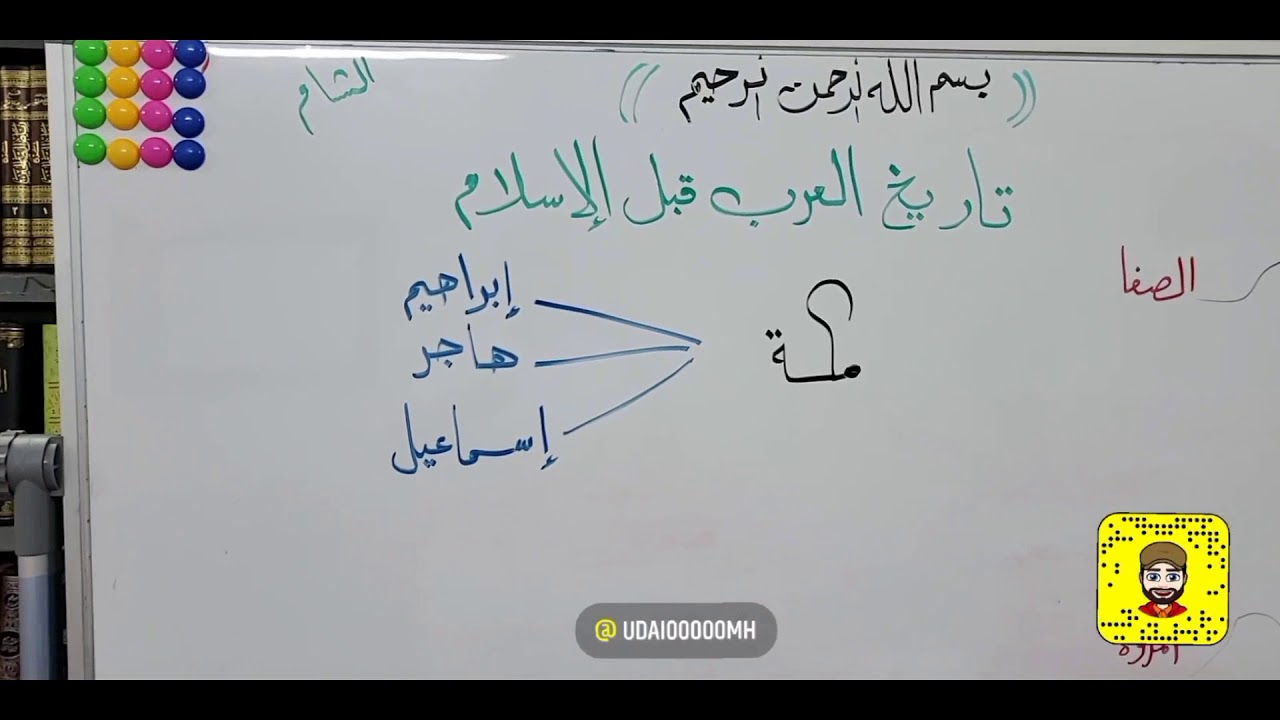 (( بسم الله الرحمن الرحيم ))
الشام
تاريخ العرب قبل الإسلام
الصفا
مكة
إبراهيم
هاجر
إسماعيل
@ UDAI00000MH
المروة